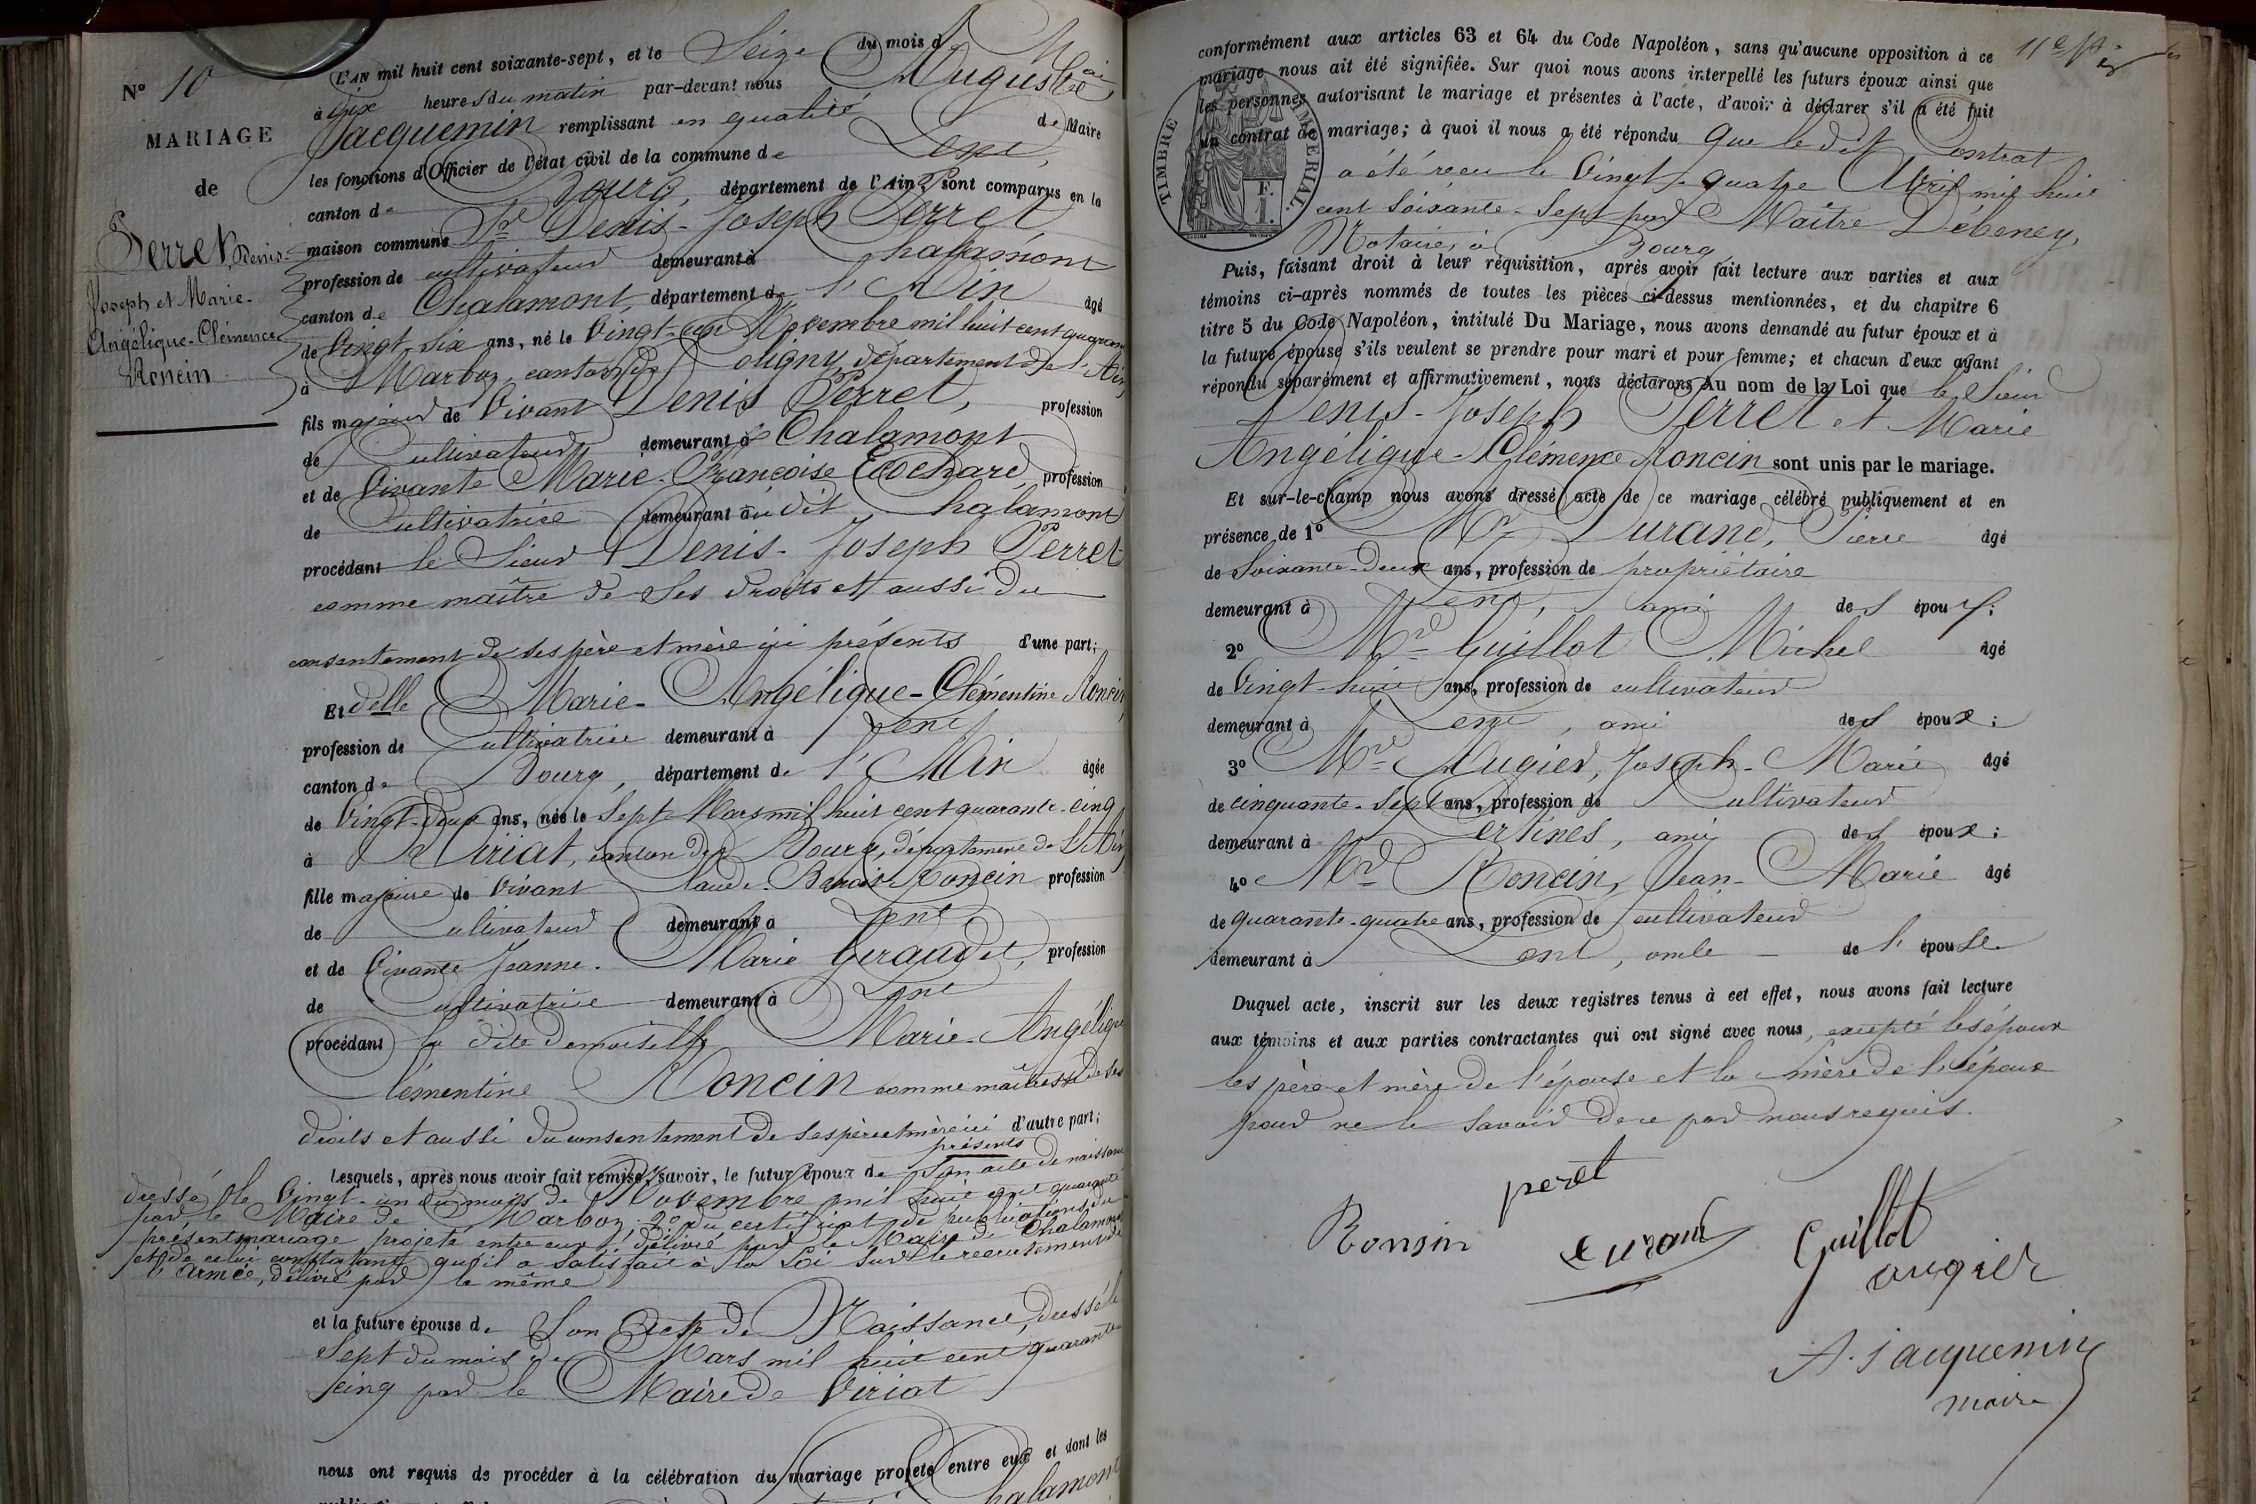 N° 10
MARIAGE
de
Perret, Denis-
Joseph et Marie-
Angélique-Clémence
Roncin
L'AN mil huit cent soixante-sept, et le Seize du mois de Mai
à dix heures du matin par-devant nous Auguste
Jacquemin remplissant en qualité de Maire
les fonctions d'Officier de l'état civil de la commune de Lent,
canton de Bourg, département de l'Ain, sont comparus en la
maison commune Sr Denis-Joseph Perret
profession de cultivateur demeurant à Chalamont
canton de Chalamont, département de l'Ain âgé
de Vingt-six ans, né le Vingt-un Novembre mil huit cent quarante
à Marboz, canton de Coligny, département de l'Ain
fils majeur de Vivant Denis Perret, profession
de Cultivateur demeurant à Chalamont
et de Vivante Marie-Françoise Cochard profession
de Cultivatrice demeurant au dit Chalamont
procédant le Sieur Denis-Joseph Perret
comme maître de ses droits et aussi du
consentement de ses père et mère ici présents d'une part;
Et delle Marie-Angélique-Clémentine Roncin,
profession de Cultivatrice demeurant à Lent
canton de Bourg, département de l'Ain âgée
de Vingt-deux ans, née le Sept Mars mil huit cent quarante-cinq
à Viriat, canton de Bourg, département de l'Ain
fille majeure de Vivant Claude-Benoit Roncin profession
de Cultivateur demeurant à Lent
et de Vivante Jeanne-Marie Geraudet, profession
de Cultivatrice demeurant à Lent
procédant la dite demoiselle Marie-Angélique
Clémentine Roncin comme maîtresse de ses
droits et aussi du consentement de ses père et mère ici d'autre part;
présents
Lesquels, après nous avoir fait remise, savoir, le futur époux de Son acte de naissance
dressé le Vingt-un du mois de Novembre mil huit cent quarante
par le Maire de Marboz; 2° du certificat de publications du
présent mariage projeté entre eux délivré par le Maire de Chalamont
et de celui constatant qu'il a satisfait à la Loi sur le recrutement de
l'armée, délivré par le même
et la future épouse de Son Acte de Naissance, dressé le
Sept du mois de Mars mil huit cent quarante
cinq par le Maire de Viriat
nous ont requis de procéder à la célébration du mariage projeté entre eux et dont les
Chalamont
conformément aux articles 63 et 64 du Code Napoléon, sans qu'aucune opposition à ce
mariage nous ait été signifiée. Sur quoi nous avons interpellé les futurs époux ainsi que
les personnes autorisant le mariage et présentes à l'acte, d'avoir à déclarer s'il a été fait
un contrat de mariage; à quoi il nous a été répondu que le dit Contrat
a été reçu le Vingt-quatre Avril mil huit
cent soixante-sept par Maître Débeney,
Notaire, à Bourg
TIMBRE IMPÉRIAL
1 F.
Puis, faisant droit à leur réquisition, après avoir fait lecture aux parties et aux
témoins ci-après nommés de toutes les pièces ci-dessus mentionnées, et du chapitre 6
titre 5 du Code Napoléon, intitulé Du Mariage, nous avons demandé au futur époux et à
la future épouse s'ils veulent se prendre pour mari et pour femme; et chacun d'eux ayant
répondu séparément et affirmativement, nous déclarons Au nom de la Loi que le Sieur
Denis-Joseph Perret et Marie
Angélique-Clémence Roncin sont unis par le mariage.
Et sur-le-champ nous avons dressé acte de ce mariage célébré publiquement et en
présence de 1° Mr Durand, Pierre âgé
de Soixante-deux ans, profession de propriétaire
demeurant à Lent, ami des époux;
2° Mr Guillot Michel âgé
de Vingt-huit ans, profession de cultivateur
demeurant à Lent, ami des époux;
3° Mr Augier, Joseph-Marie âgé
de cinquante-sept ans, profession de Cultivateur
demeurant à Certines, ami des époux;
4° Mr Roncin, Jean-Marie âgé
de quarante-quatre ans, profession de cultivateur
demeurant à Lent, oncle de l'épouse
Duquel acte, inscrit sur les deux registres tenus à cet effet, nous avons fait lecture
aux témoins et aux parties contractantes qui ont signé avec nous, excepté les époux
les père et mère de l'épouse et la mère de l'époux
pour ne le savoir de ce par nous requis.
peret
Ronsin
Durand
Guillot
augier
A. Jacquemin
maire